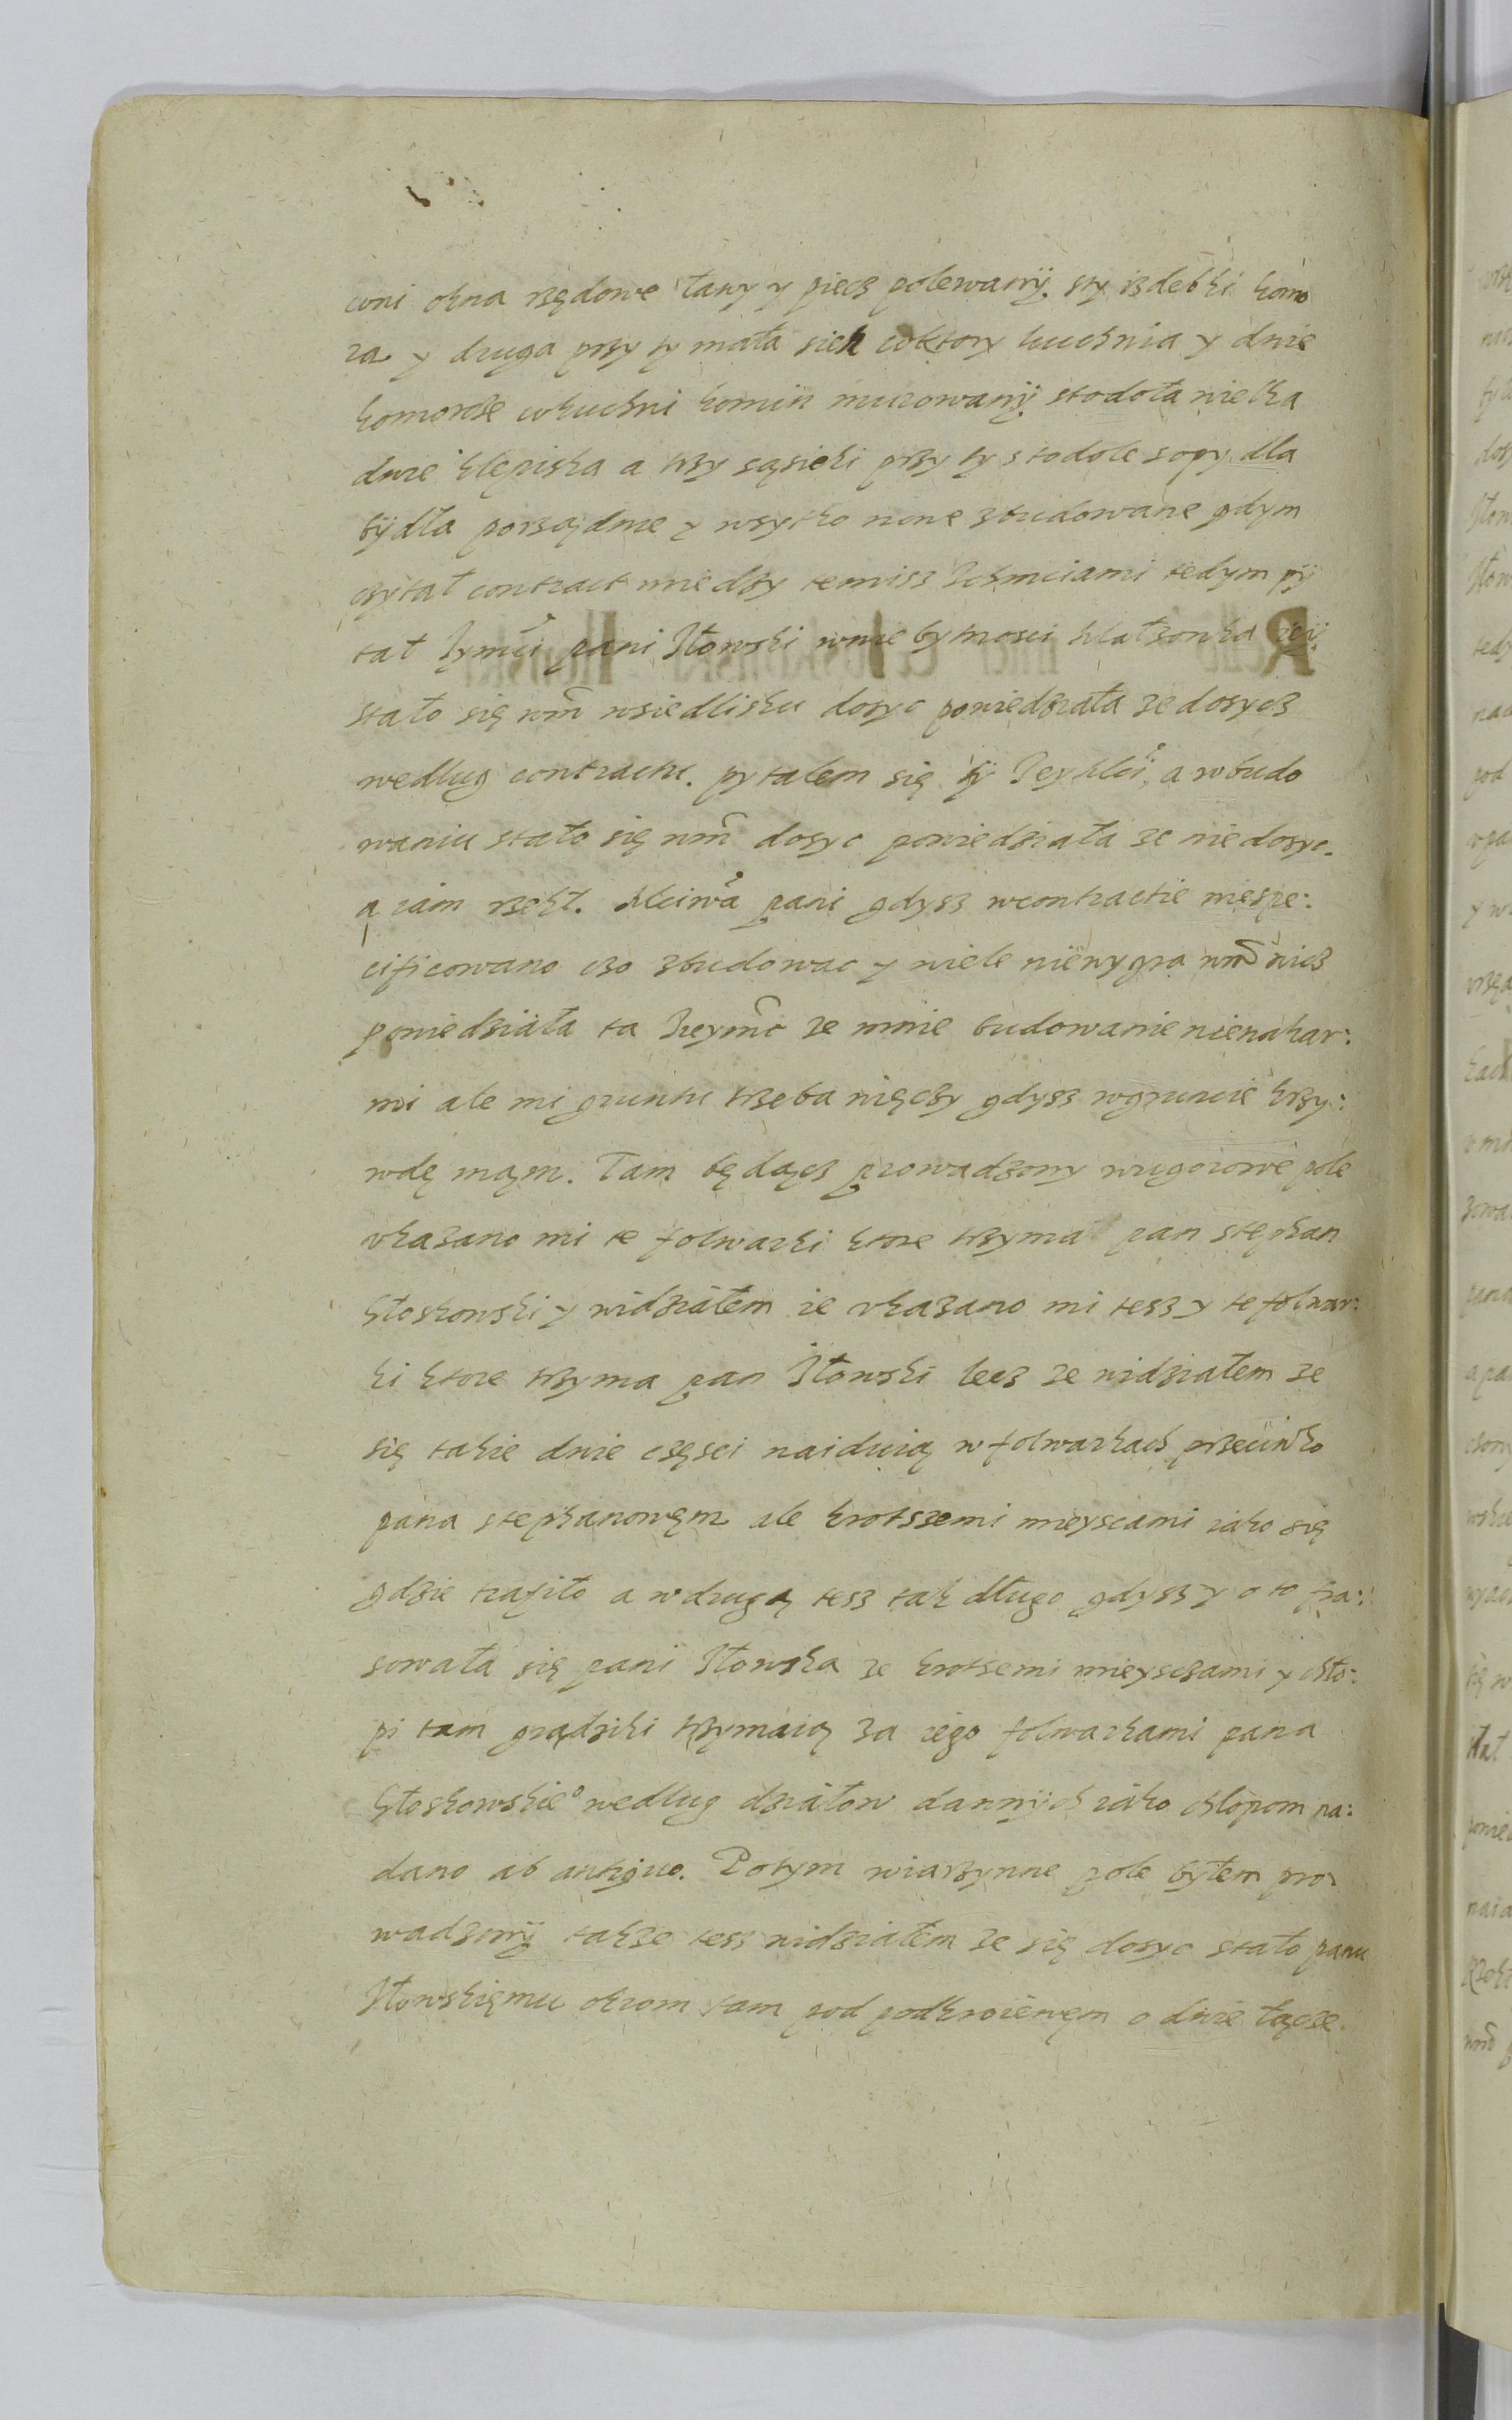 wni okna rzędowe ławy y piecz polewanÿ. sty izdebki komo
ra y druga przy ty mała sień wktory kuchnia y dwie
komorcse wkuchni komin murowanÿ stodoła wielka
dwie klepiska a trzy sąsieki przy ty stodole sopy dla
bÿdła porządne y wsytko nowe zbudowane gdym
czytał contract miedzy temisz Ichmciami tedym pÿ
tał Iymci pani Iłowski wnie bytnosci małzonka ieÿ.
stało się wm̃ wsiedlisku dosyc powiedziała ze dosycz
według contractu. pytalem się tÿ Ieymci, a wbudo
waniu stało się wm̃ dosyc powiedziała ze niedosyc.
a iam rzekł. Mciwa pani gdysz wcontractie niespe:
cificowano czo zbudowac y wiele niewygra wm̃ nicz
powiedziała ta Ieymc ze mnie budowanie nienakar:
mi ale mi gruntu trzeba więczy gdysz wgruncie krzy:
wdę mąm. Tam będącz prowadzony wugorowe pole
vkazano mi te folwarki ktore trzyma pan stephan
Głoskowski y widziałem ie vkazano mi tesz y te folwar:
ki ktore trzyma pan Iłowski lecz ze widziałem ze
się takie dwie częsci naiduią w folwarkach przeciwko
pana stephanowęm ale krotszemi mieyscami iako się
gdzie trafiło a wdrugą tesz tak długo gdysz y o to fra:
sowała się pani Iłowska ze krotsemi mieysczami y chło:
pi tam grądziki trzymaią za iego folwarkami pana
Głoskowskie° według działow dannÿch iako chłopom na:
dano ab antiquo. Potym wiarzynne pole byłem pro
wadzonÿ takze tesz widziałem ze się dosyc stało panu
Iłowskięmu okrom tam pod podkroienęm o dwie łącze.